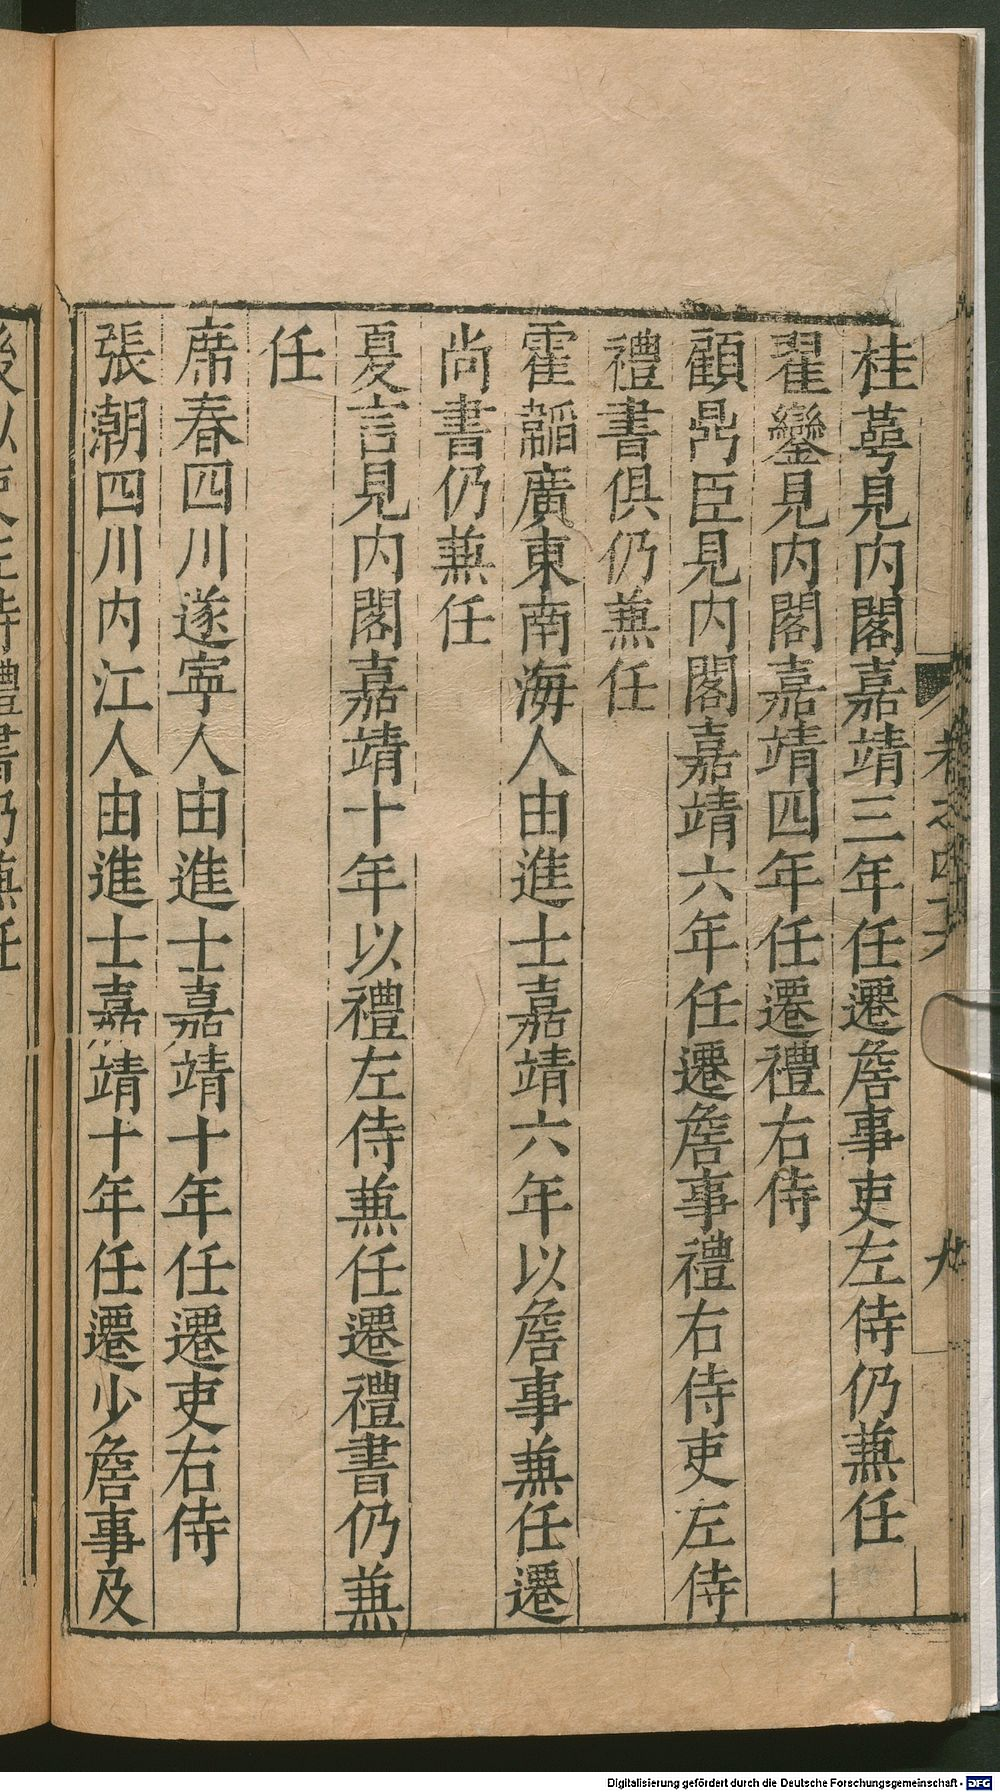 桂蕚見内閣嘉靖三年任遷詹事吏左侍仍兼任
翟鑾見内閣嘉靖四年任遷禮右侍
顧鼎臣見内閣嘉靖六年任遷詹事禮右侍吏左侍
禮書俱仍兼任
霍韜廣東南海人由進士嘉靖六年以詹事兼任遷
尚書仍兼任
夏言見内閣嘉靖十年以禮左侍兼任遷禮書仍兼
任
席春四川遂寧人由進士嘉靖十年任遷吏右侍
張潮四川内江人由進士嘉靖十年任遷少詹事及
禮書仍兼任
Digitalisierung gefördert durch die Deutsche Forschungsgemeinschaft - DFG